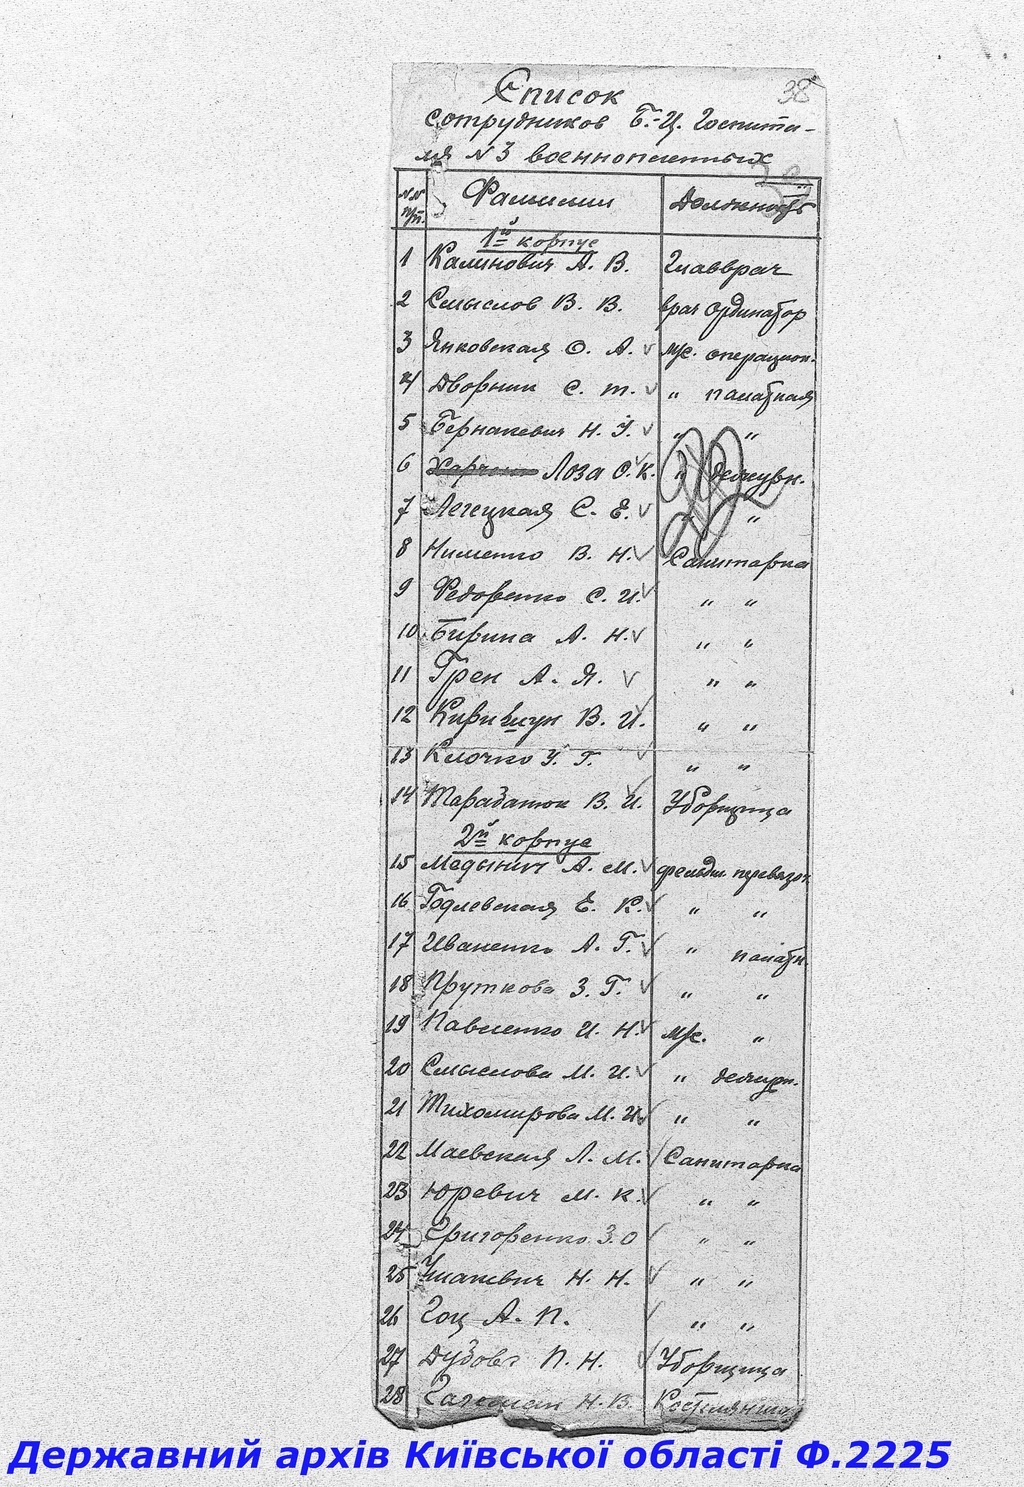 38
Список
сотрудников Б.-Ц. Госпита-
ля N 3 военнопленных
N N п/п. Фамилии Должность
1й корпус
1 Калинович А. В. Главврач
2 Смыслов В. В. врач ординатор
3 Янковская О. А. м/с. операцион.
4 Дворник С. Т. " палатная
5 Бернакевич Н. У. " "
6 Лоза О. К. " дежурн.
7 Легецкая С. Е. " "
8 Нименко В. Н. Санитарка
9 Федоренко С. И. " "
10 Бирина А. Н. " "
11 Грен А. Я. " "
12 В. И. " "
13 Клочко У. Г. " "
14 В. И. Уборщица
2й корпус
15 Медынич А. М. фельдш. перевязоч.
16 Годлевская Е. К. " "
17 Иваненко А. Г. " палатн.
18 Пруткова З. Г. " "
19 Павленко И. Н. м/с. "
20 Смыслова М. И. " дежурн.
21 Тихомирова М. И. " "
22 Маевская Л. М. Санитарка
23 Юревич М. К. " "
24 Григоренко З. О " "
25 Н. Н. " "
26 Гоц А. П. " "
27 П. Н. Уборщица
28 Н. В.
Державний архів Київської області Ф.2225